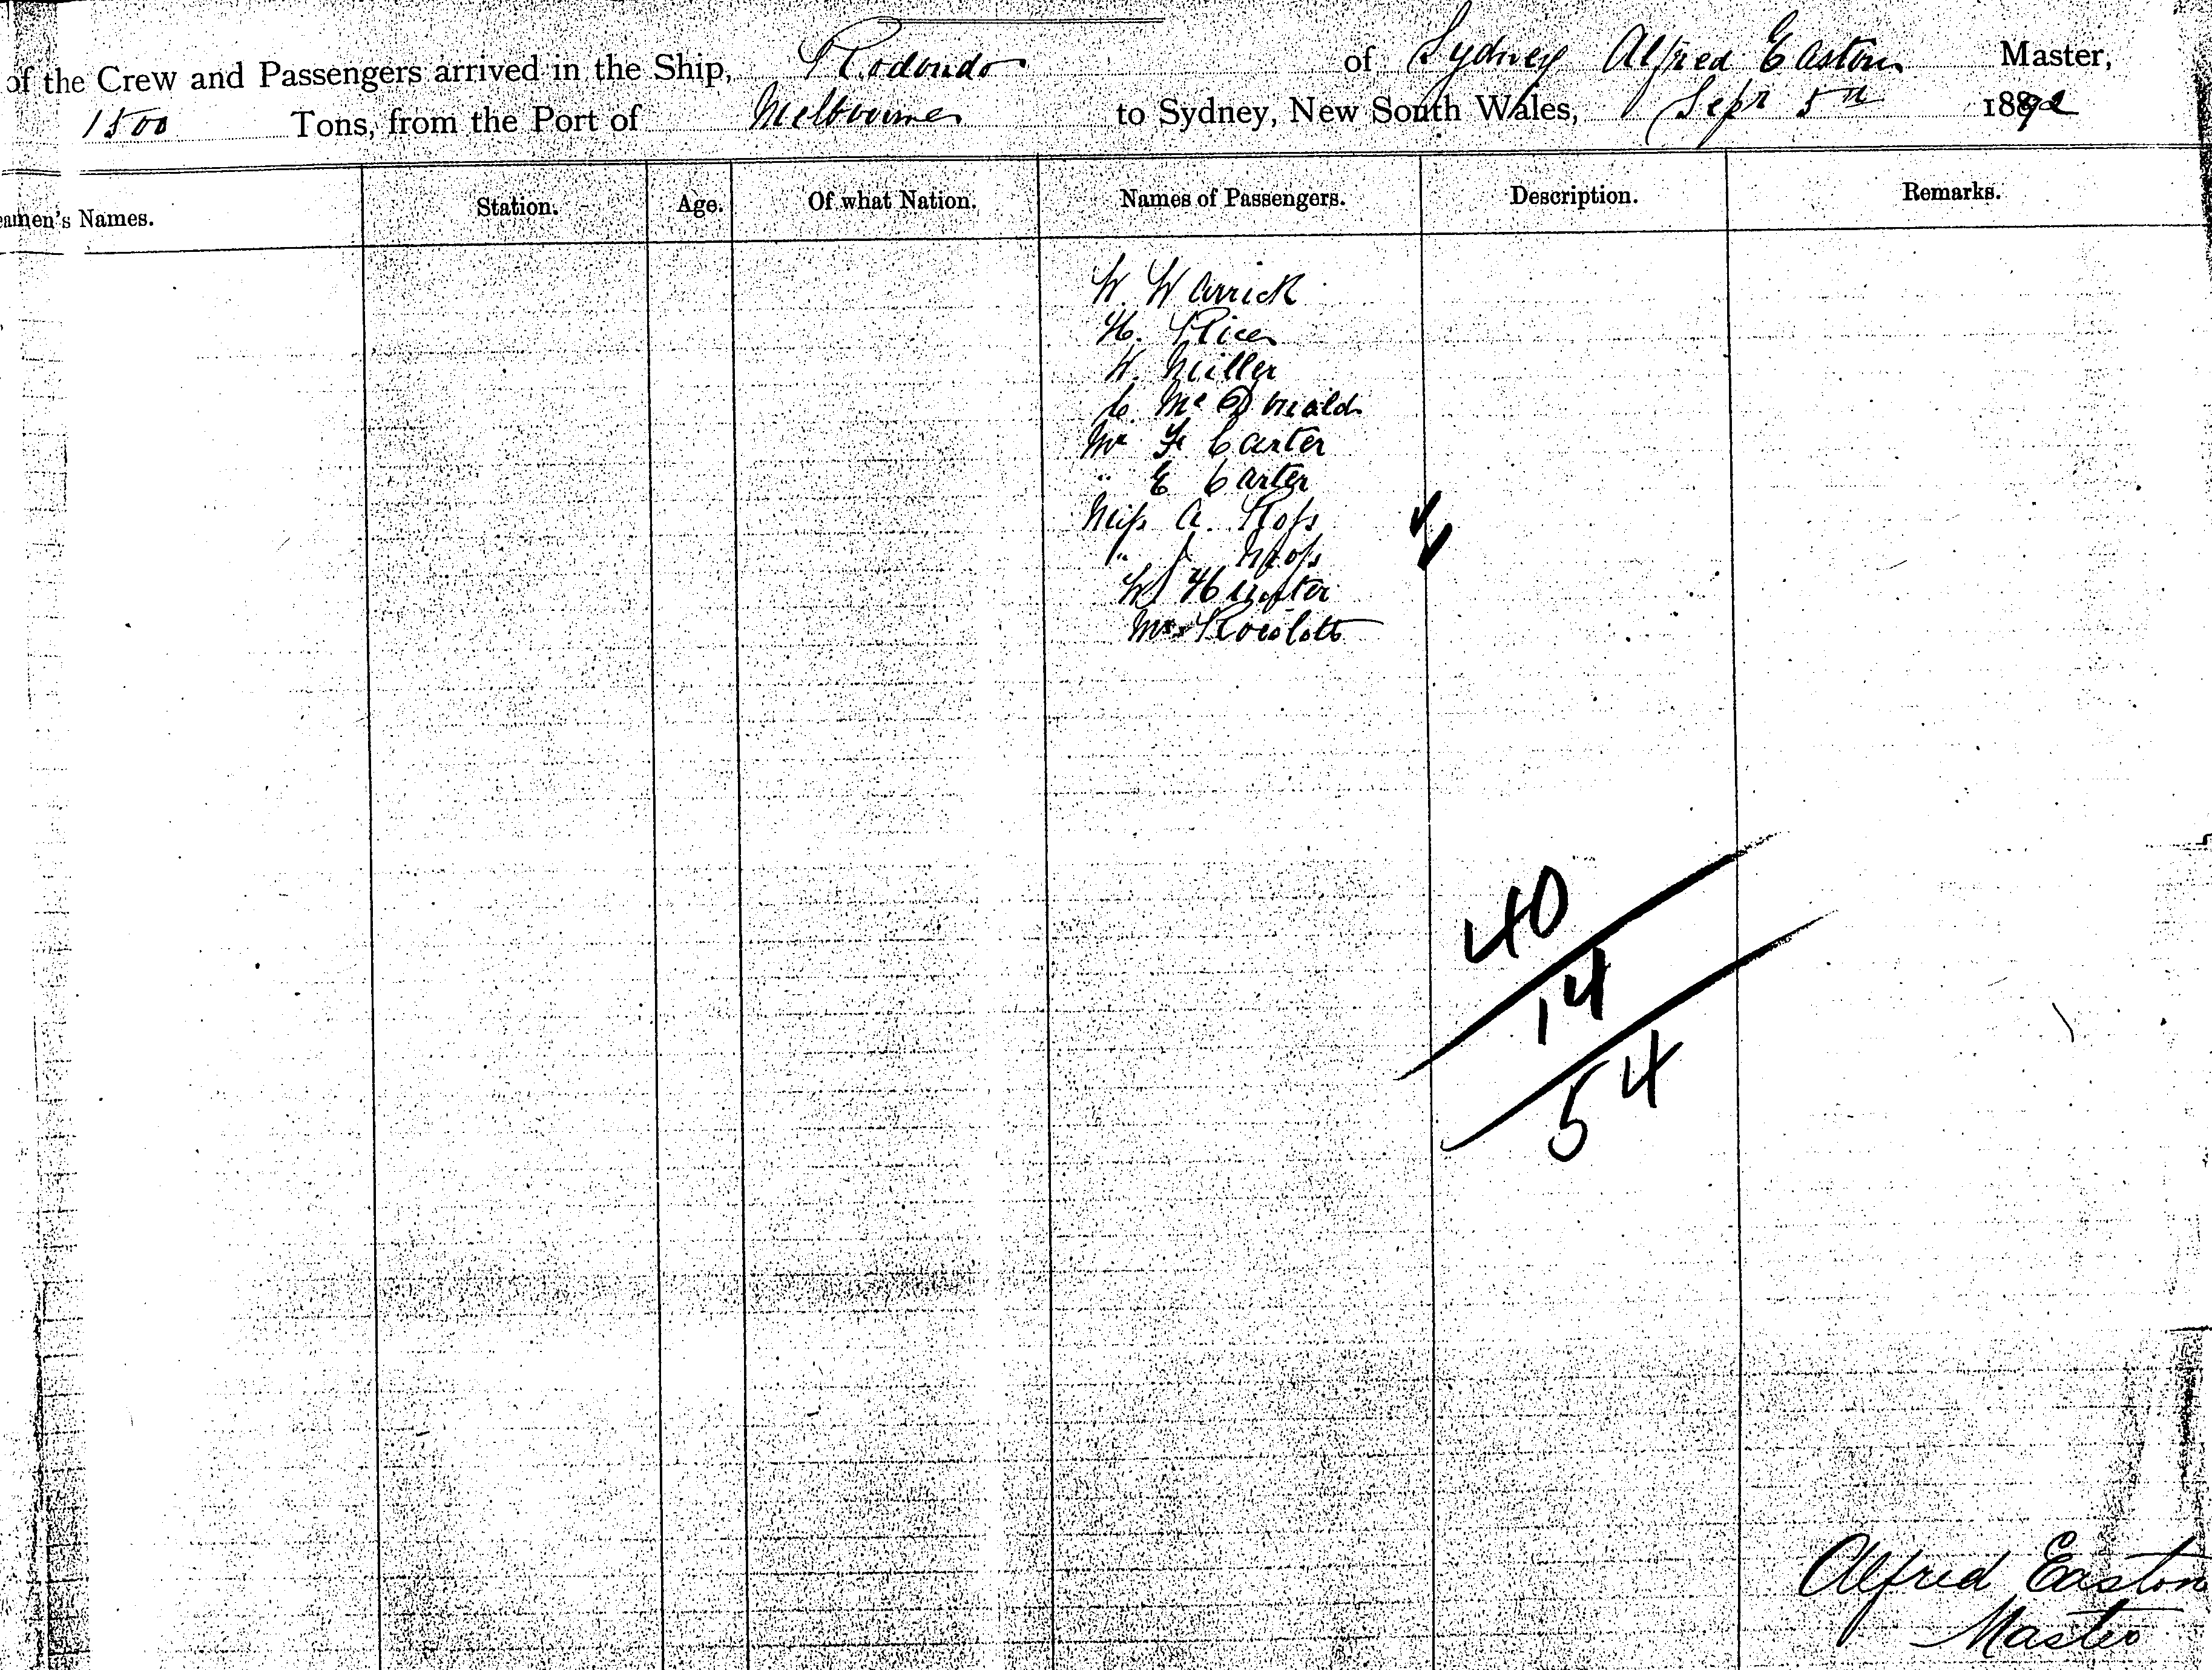 of the Crew and Passengers arrived in the Ship, Rodondo of Sydney Alfred Easton Master,
1500 Tons, from the Port of Melbourne to Sydney, New South Wales, Sept 5th 1892
eamen's Names. Station. Age. Of what Nation. Names of Passengers. Description. Remarks.
W. Warrick
H. Rice
W. Miller
C McDonald
Mr F Carter
" E Carter
Miss A. Ross
" J Ross
W Hunter
Mrs
40
14
54
Alfred Easton
Master